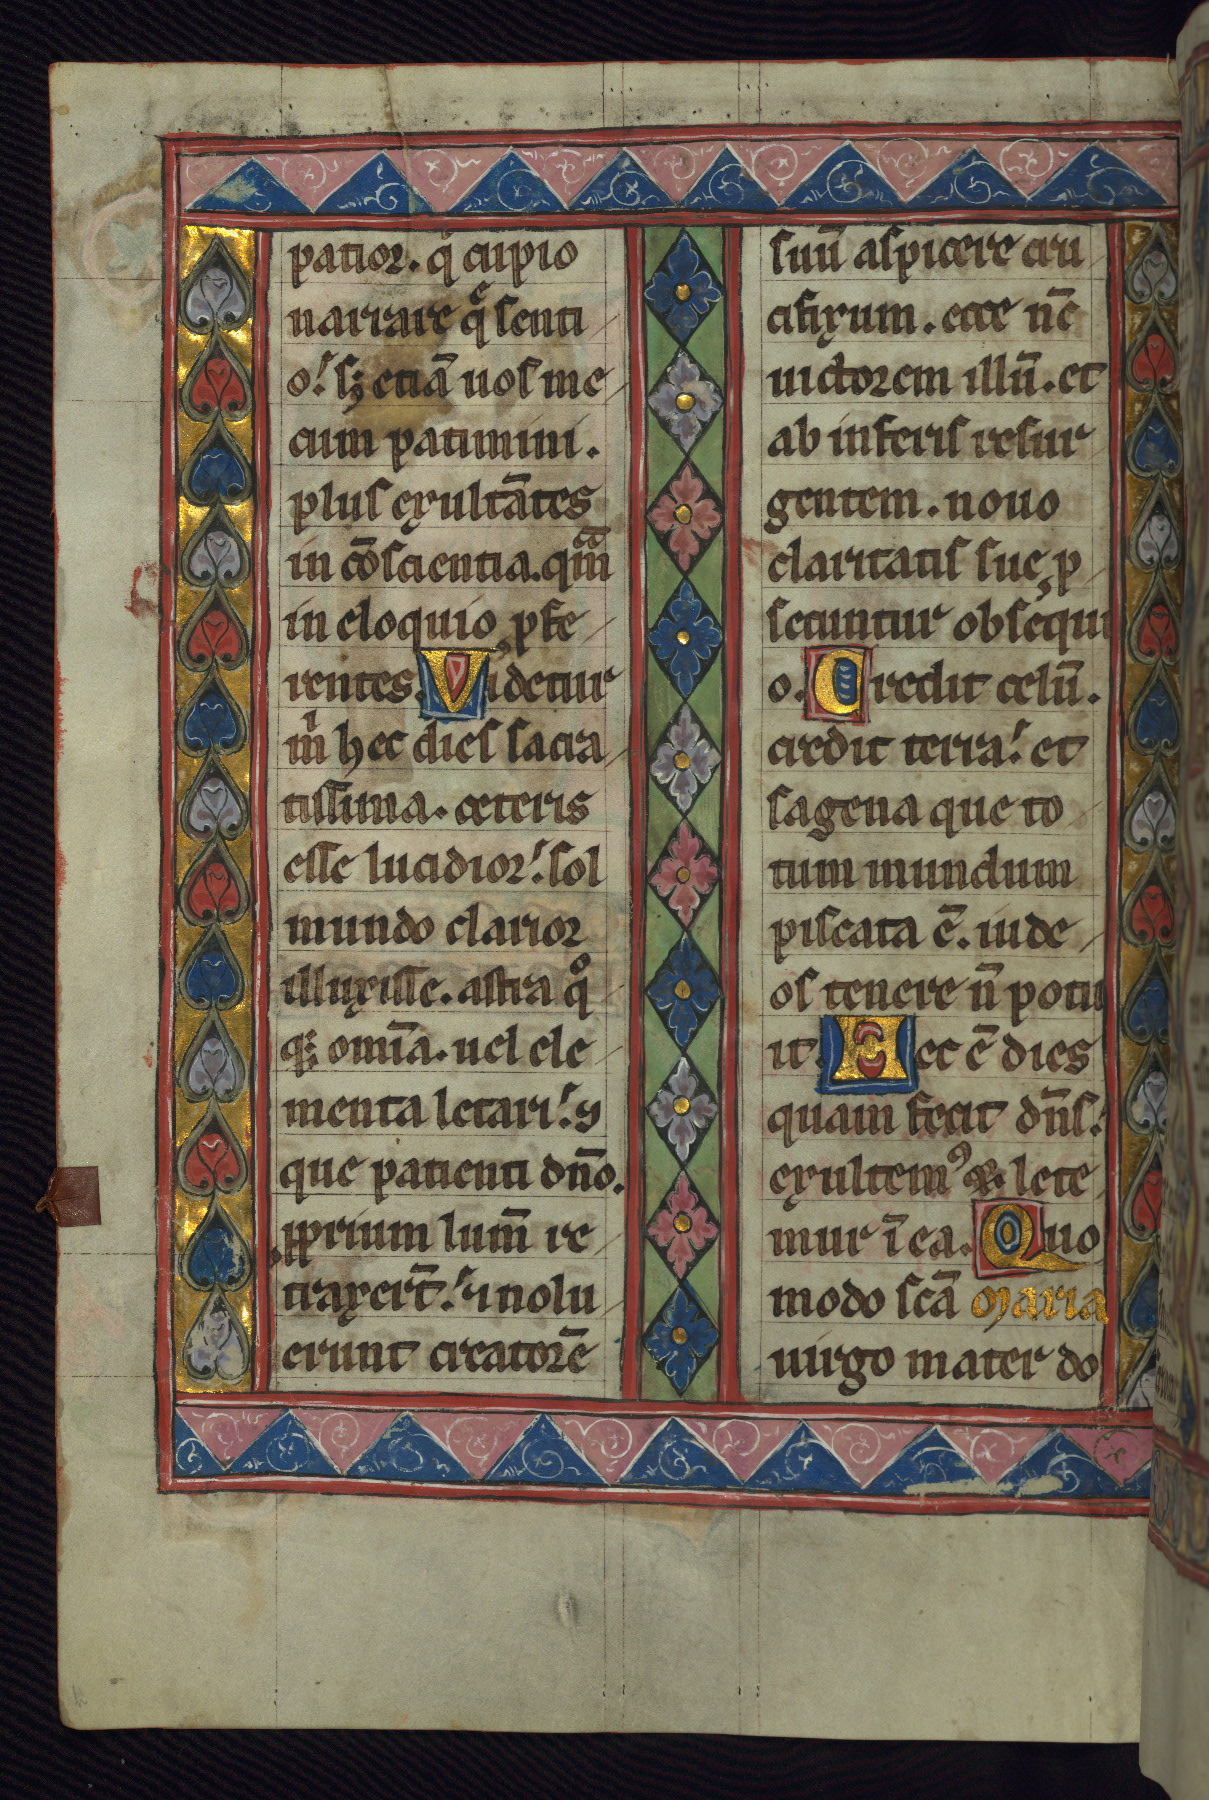 patior. q̇ cupio
narrare q̄ senti
o. sꝫ etiā uos me
cum patimini.
plus exultātes
in cōscientia. qm̄
in eloquio ꝓfe
rentes. Videtur
m̍ hec dies sacra
tissima. ceteris
esse lucidior. sol
mundo clarior
illuxisse. astra qͦ
qꝫ om̄ia. uel ele
menta letari. ꝯ
que patienti dn̄o.
ꝓprium lum̄ re
traxerūt. ⁊ nolu
erunt creatorē
suū aspicere cru
cifixum. ecce nc̄
uictorem illū. et
ab inferis resur
gentem. nouo
claritatis sue ꝓ
secuntur obsequi
o. Credit celū.
credit terra. et
sagena que to
tum mundum
piscata ē. iude
os tenere n̄ potu
it. Hec ē dies
quam fecit dn̄s.
exultemꝰ ⁊ lete
mur ī ea. Quo
modo scā Maria
uirgo mater do